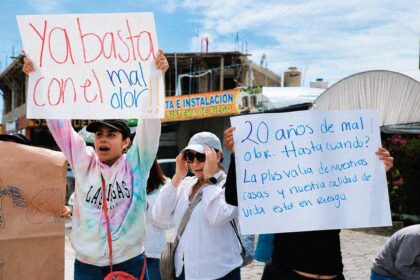 Ya basta
con el mal
olor!!
TA E INSTALACION
SISTEMA DE RIEGO
20 años de mal
olor. Hasta cuando?
La plusvalia de nuestras
casas y nuestra calidad de
vida está en riesgo.